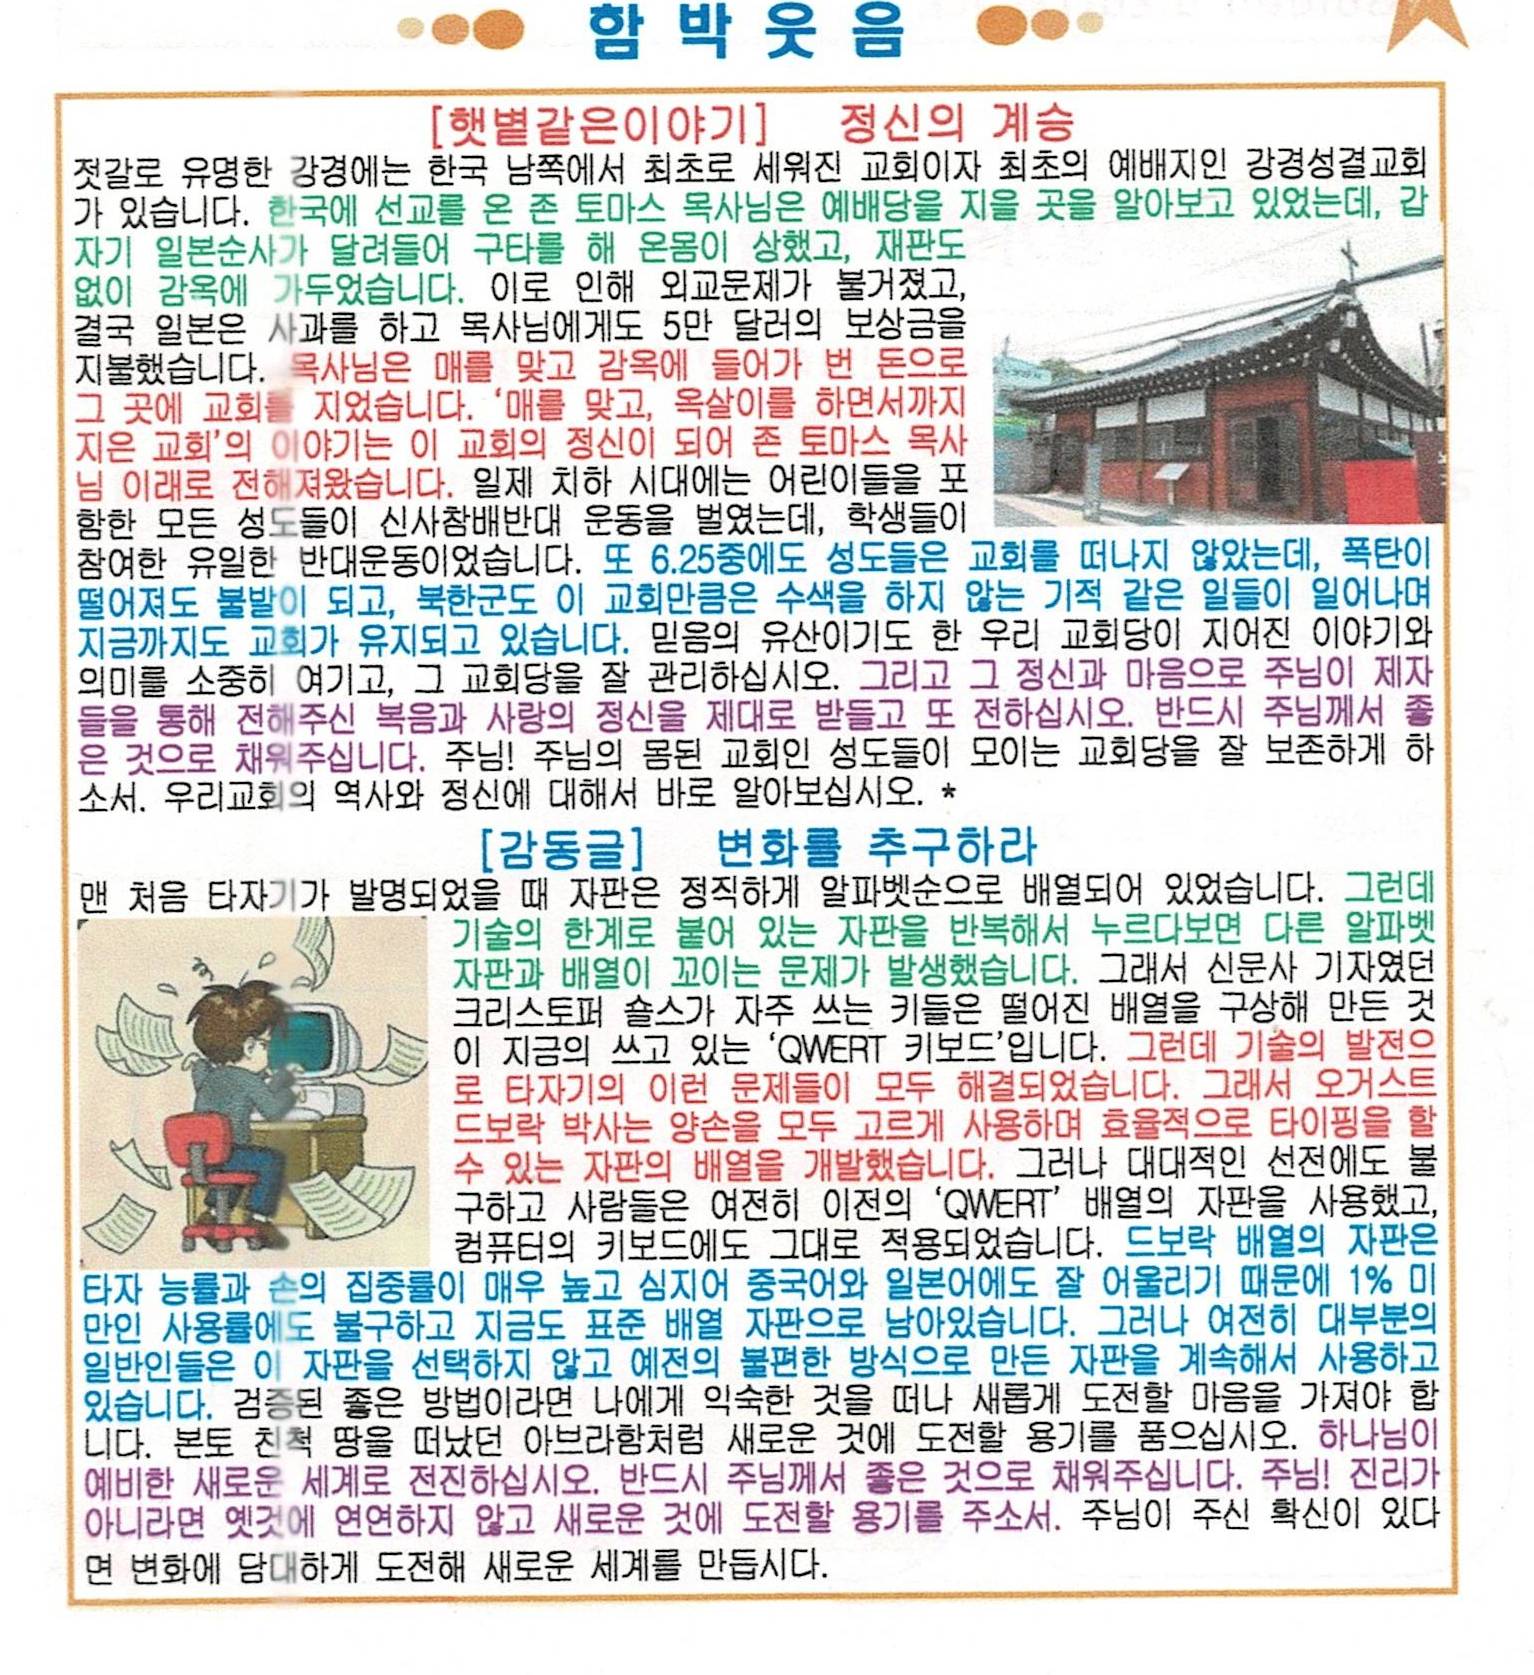 함박웃음
[햇볕같은이야기] 정신의 계승
젓갈로 유명한 강경에는 한국 남쪽에서 최초로 세워진 교회이자 최초의 예배지인 강경성결교회
가 있습니다. 한국에 선교를 온 존 토마스 목사님은 예배당을 지을 곳을 알아보고 있었는데, 갑
자기 일본순사가 달려들어 구타를 해 온몸이 상했고, 재판도
없이 감옥에 가두었습니다. 이로 인해 외교문제가 불거졌고,
결국 일본은 사과를 하고 목사님에게도 5만 달러의 보상금을
지불했습니다. 목사님은 매를 맞고 감옥에 들어가 번 돈으로
그 곳에 교회를 지었습니다. '매를 맞고, 옥살이를 하면서까지
지은 교회'의 이야기는 이 교회의 정신이 되어 존 토마스 목사
님 이래로 전해져왔습니다. 일제 치하 시대에는 어린이들을 포
함한 모든 성도들이 신사참배반대 운동을 벌였는데, 학생들이
참여한 유일한 반대운동이었습니다. 또 6.25중에도 성도들은 교회를 떠나지 않았는데, 폭탄이
떨어져도 불발이 되고, 북한군도 이 교회만큼은 수색을 하지 않는 기적 같은 일들이 일어나며
지금까지도 교회가 유지되고 있습니다. 믿음의 유산이기도 한 우리 교회당이 지어진 이야기와
의미를 소중히 여기고, 그 교회당을 잘 관리하십시오. 그리고 그 정신과 마음으로 주님이 제자
들을 통해 전해주신 복음과 사랑의 정신을 제대로 받들고 또 전하십시오. 반드시 주님께서 좋
은 것으로 채워주십니다. 주님! 주님의 몸된 교회인 성도들이 모이는 교회당을 잘 보존하게 하
소서. 우리교회의 역사와 정신에 대해서 바로 알아보십시오. *
[감동글] 변화를 추구하라
맨 처음 타자기가 발명되었을 때 자판은 정직하게 알파벳순으로 배열되어 있었습니다. 그런데
기술의 한계로 붙어 있는 자판을 반복해서 누르다보면 다른 알파벳
자판과 배열이 꼬이는 문제가 발생했습니다. 그래서 신문사 기자였던
크리스토퍼 숄스가 자주 쓰는 키들은 떨어진 배열을 구상해 만든 것
이 지금의 쓰고 있는 'QWERT 키보드'입니다. 그런데 기술의 발전으
로 타자기의 이런 문제들이 모두 해결되었습니다. 그래서 오거스트
드보락 박사는 양손을 모두 고르게 사용하며 효율적으로 타이핑을 할
수 있는 자판의 배열을 개발했습니다. 그러나 대대적인 선전에도 불
구하고 사람들은 여전히 이전의 'QWERT' 배열의 자판을 사용했고,
컴퓨터의 키보드에도 그대로 적용되었습니다. 드보락 배열의 자판은
타자 능률과 손의 집중률이 매우 높고 심지어 중국어와 일본어에도 잘 어울리기 때문에 1% 미
만인 사용률에도 불구하고 지금도 표준 배열 자판으로 남아있습니다. 그러나 여전히 대부분의
일반인들은 이 자판을 선택하지 않고 예전의 불편한 방식으로 만든 자판을 계속해서 사용하고
있습니다. 검증된 좋은 방법이라면 나에게 익숙한 것을 떠나 새롭게 도전할 마음을 가져야 합
니다. 본토 친척 땅을 떠났던 아브라함처럼 새로운 것에 도전할 용기를 품으십시오. 하나님이
예비한 새로운 세계로 전진하십시오. 반드시 주님께서 좋은 것으로 채워주십니다. 주님! 진리가
아니라면 옛것에 연연하지 않고 새로운 것에 도전할 용기를 주소서. 주님이 주신 확신이 있다
면 변화에 담대하게 도전해 새로운 세계를 만듭시다.